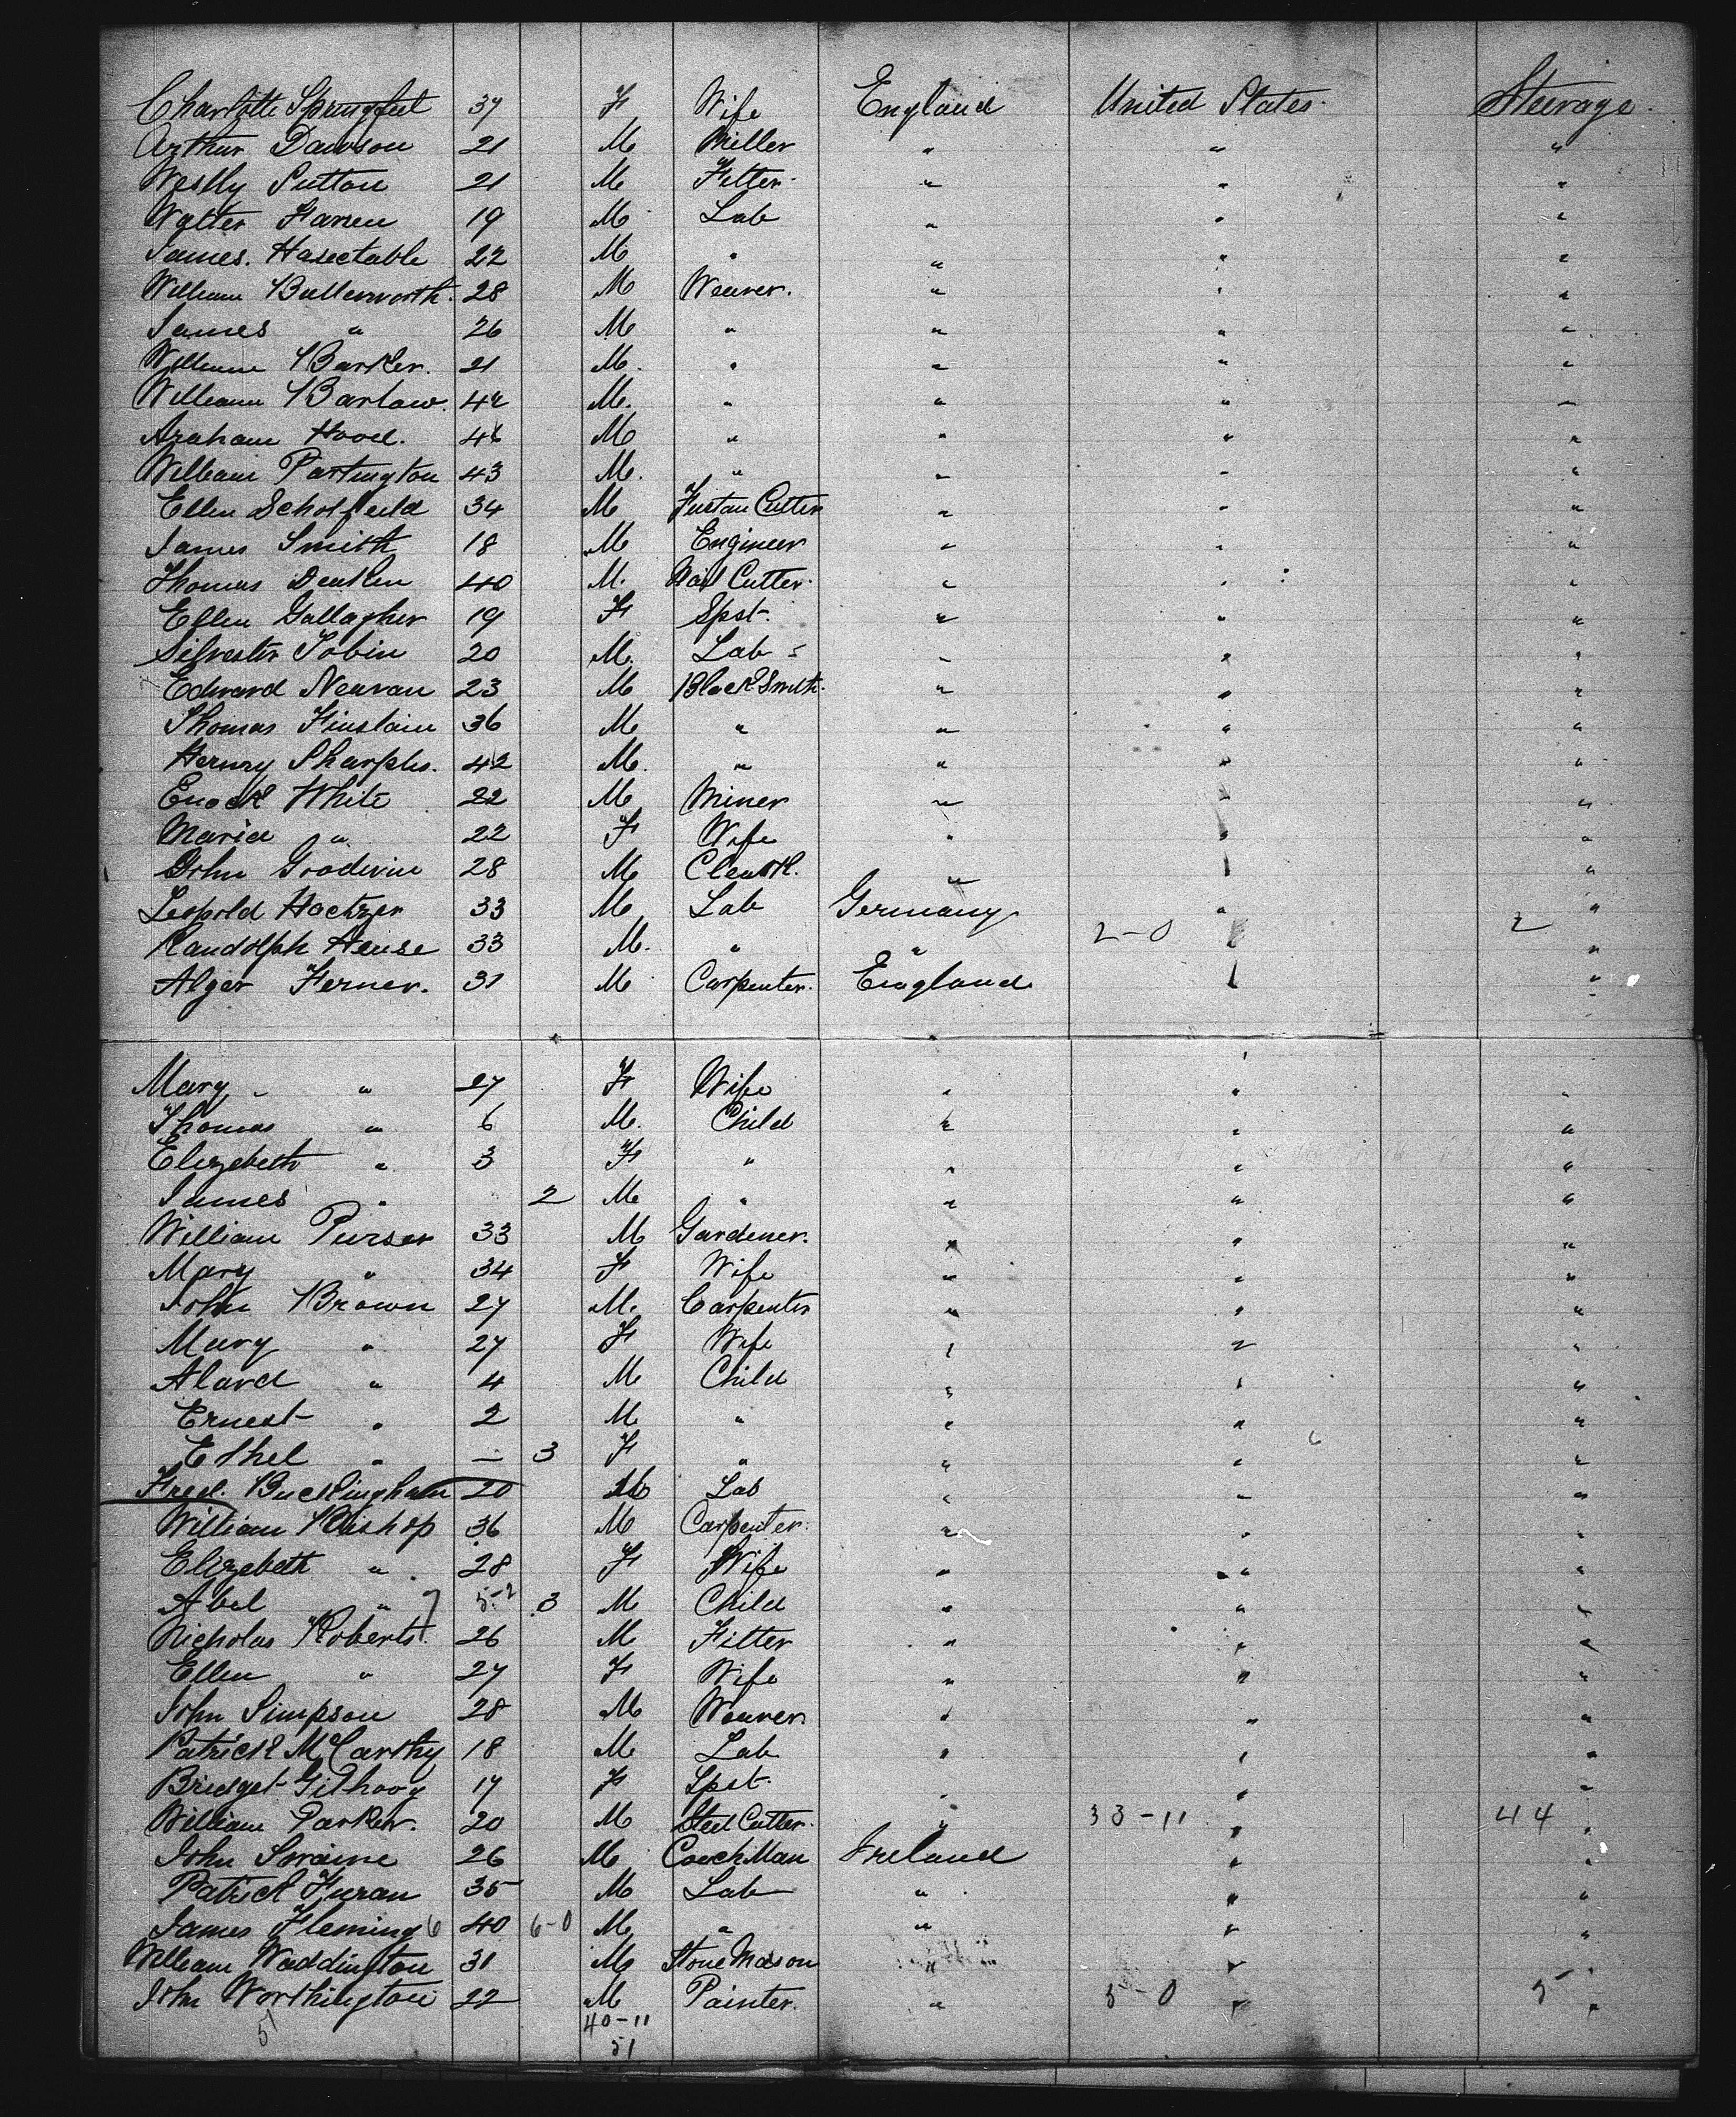 Charlotte Springfeet 37 F Wife England United States. Steerage.
Arthur Dawson 21 M Miller " " "
Weslly Sutton 21 M Fitter. " " "
Walter 19 M Lab " " "
James. Hasectable 22 M " " " "
William Butterworth. 28 M Weaver. " " "
James " 26 M " " " "
William Barker. 21 M. " " " "
William Barlow. 42 M. " " " "
Araham Hood. 46 M " " " "
William Partington 43 M. " " " "
Ellen Scholfeild 34 M Fustan Cutter " " "
James Smith 18 M Engineer " " "
Thomas Deaken 40 M. Nail Cutter. " " "
Ellen Gallagher 19 F Spst. " " "
Silvester Tobin 20 M. Lab " " "
Edward Nevvan 23 M BlackSmith. " " "
Thomas 36 M " " " "
Hernry Sharples. 42 M. " " " "
Enock White 22 M Miner " " "
Maria " 22 F Wife " " "
John Goodwin 28 M " " "
Leopold Hoetzer 33 M Lab Germany " "
Randolph Hense 33 M. " " 2-0 " 2 "
Alger Ferner. 31 M Carpenter. England " "
Mary " 27 F Wife " " "
Thomas " 6 M. Child " " "
Elizebeth " 3 F " " " "
James " 2 M " " " "
William Purser 33 M Gardener. " " "
Mary " 34 F Wife " " "
John Brown 27 M. Carpenter " " "
Mary " 27 F Wife " " "
Alard " 4 M Child " " "
Ernest " 2 M " " " "
Ethel " — 3 F " " " "
Fred. Buckingham 20 M Lab " " "
William Bishop 36 M Carpenter. " " "
Elizebeth " 28 F Wife " " "
Abel " 3 M Child " " "
Nicholas Roberts. 26 M Fitter " " "
Ellen " 27 F Wife " " "
John Simpson 28 M Weaver " " "
Patrick McCarthy 18 M Lab " " "
Bridget Gilhooy 17 F Spst. " " "
William Parker. 20 M Steel Cutter. " 33-11 " 44 "
John 26 M CoachMan Ireland " "
Patrick Furan 35 M Lab " " "
James Fleming 6 40 6-0 M " " " "
William Waddington 31 M Stone Mason " " "
John Worthington 22 M Painter. " 5-0 " 5 "
51 40-11
51